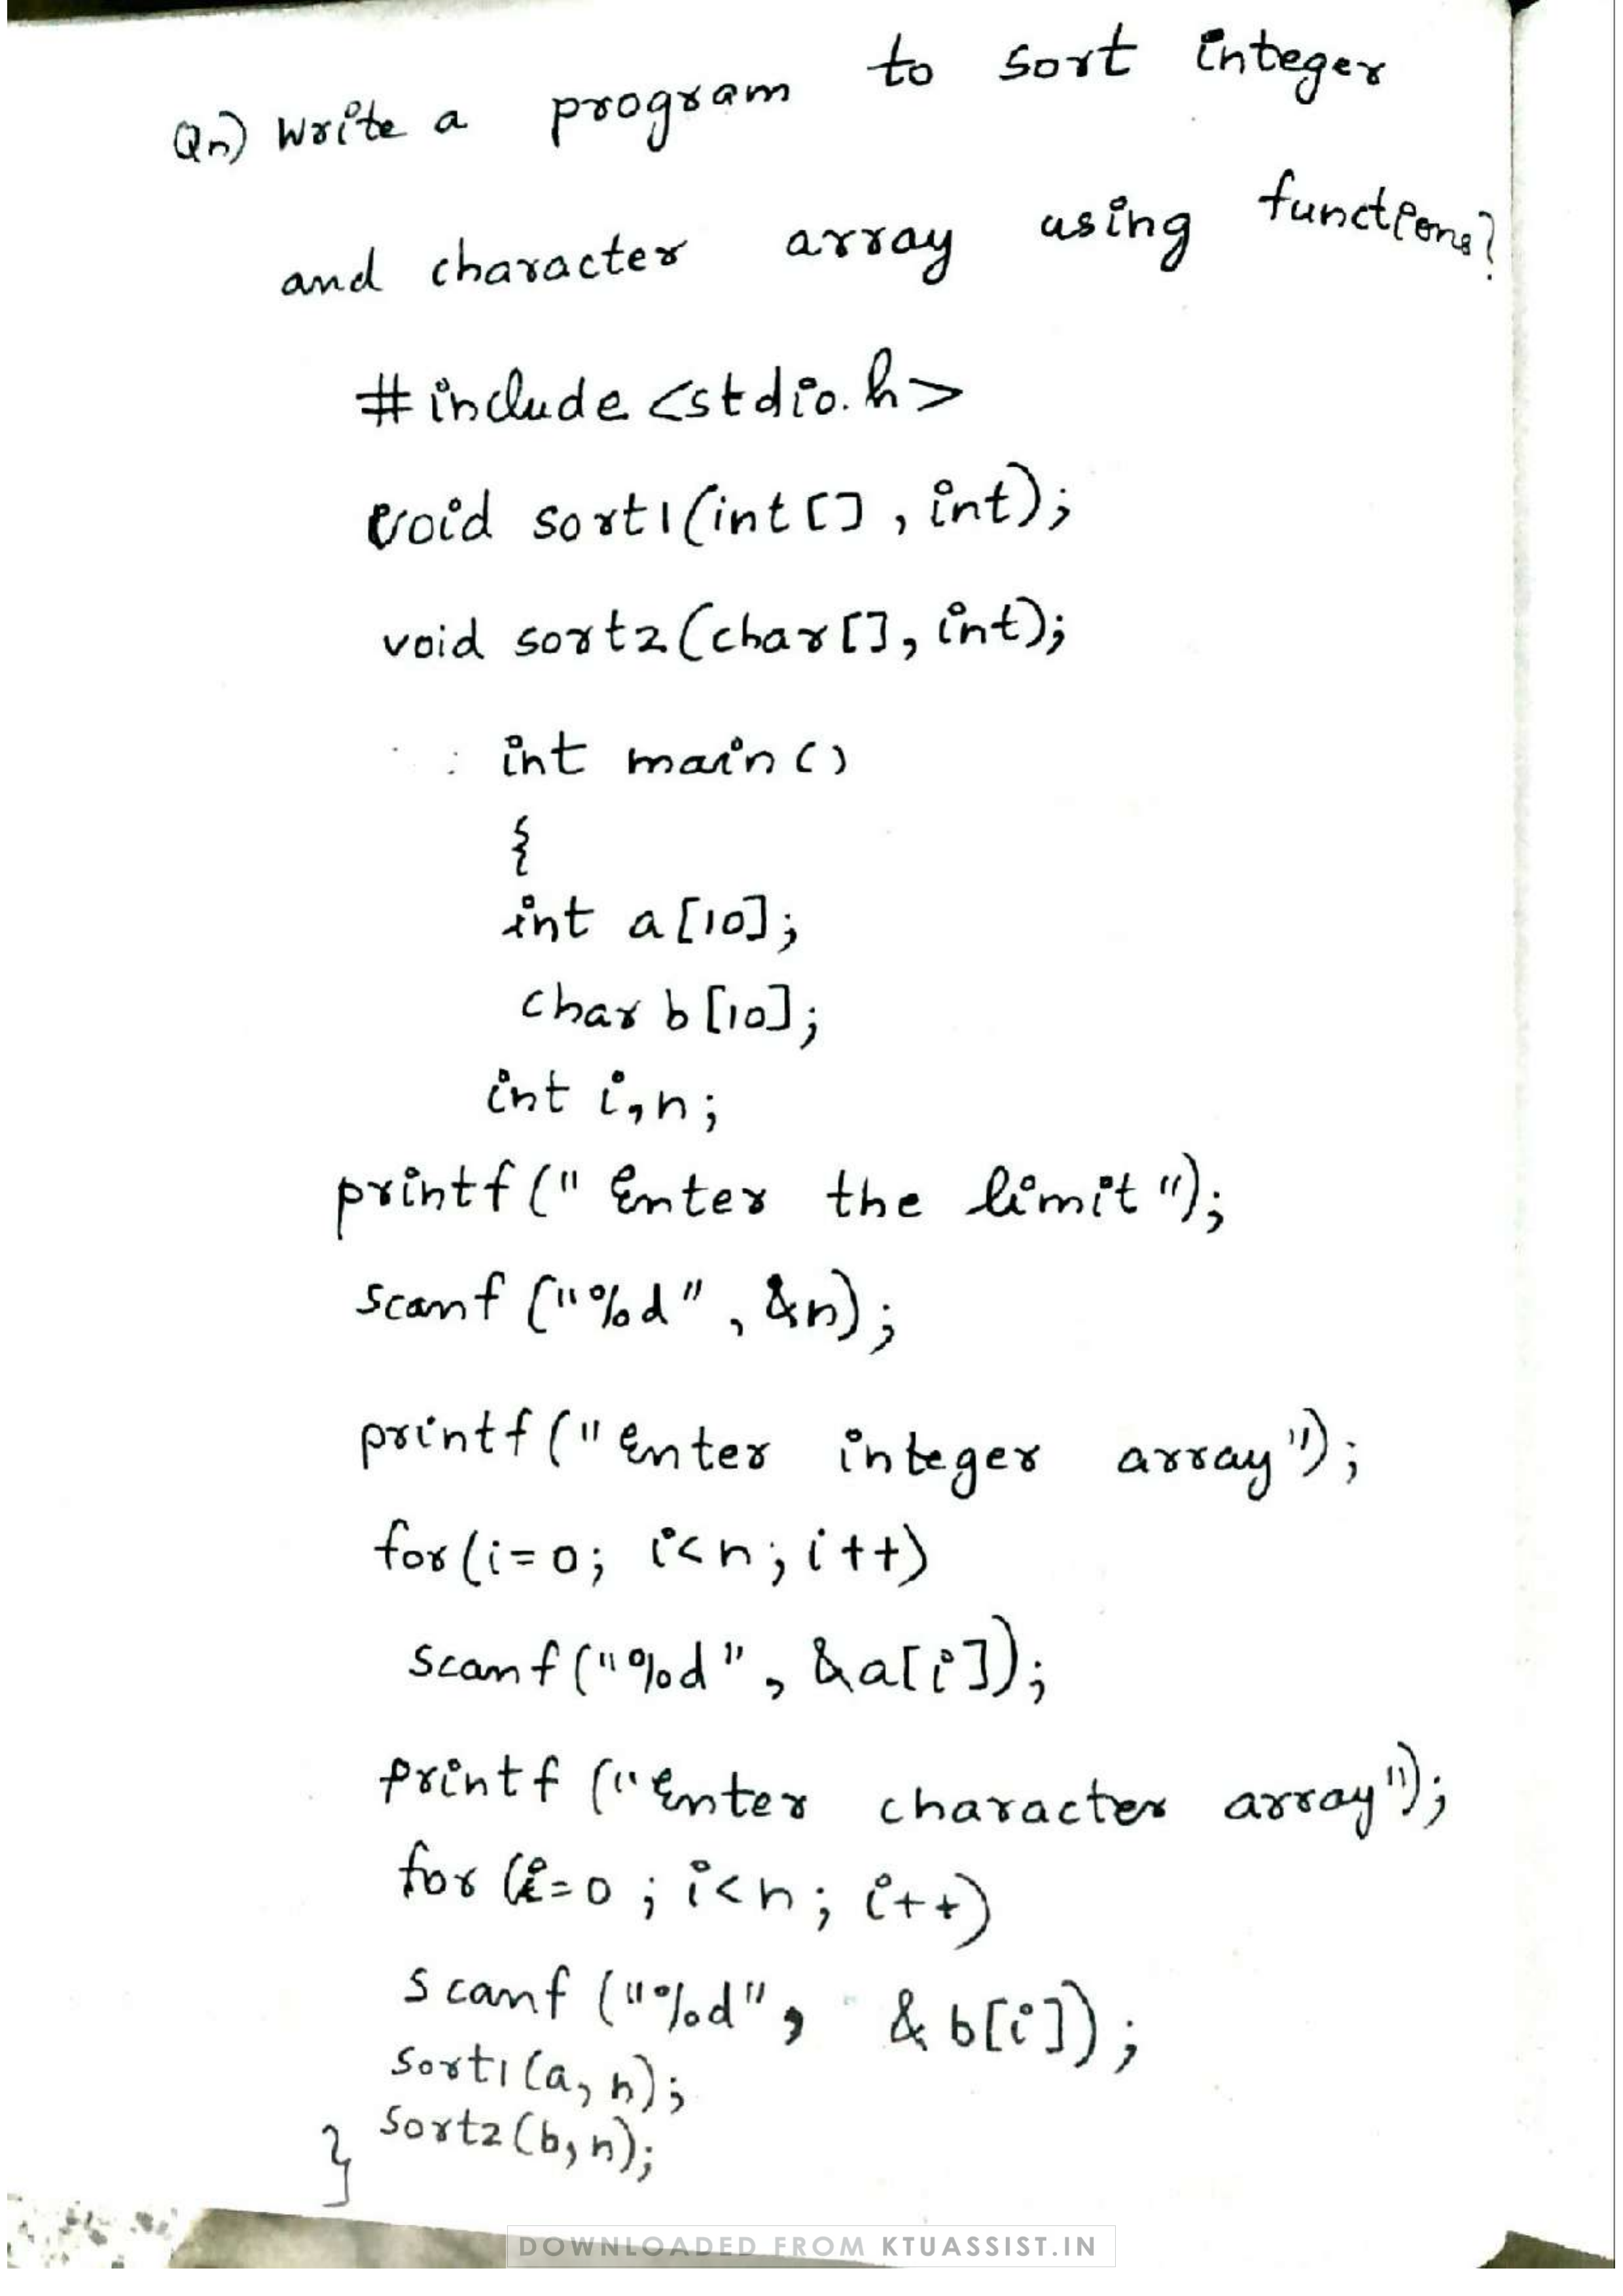 Qn) Write a program to sort integer
and character array using functions?
#include <stdio.h>
void sort1(int [] , int);
void sort2(char[], int);
int main()
{
int a[10];
char b[10];
int i,n;
printf(" Enter the limit ");
scanf ("%d" , &n);
printf("Enter integer array");
for(i=0; i<n; i++)
scanf("%d", &a[i]);
printf ("Enter character array");
for (i=0 ; i<n; i++)
scanf ("%d", & b[i]);
sort1(a, n);
sort2(b, n);
}
DOWNLOADED FROM KTUASSIST.IN